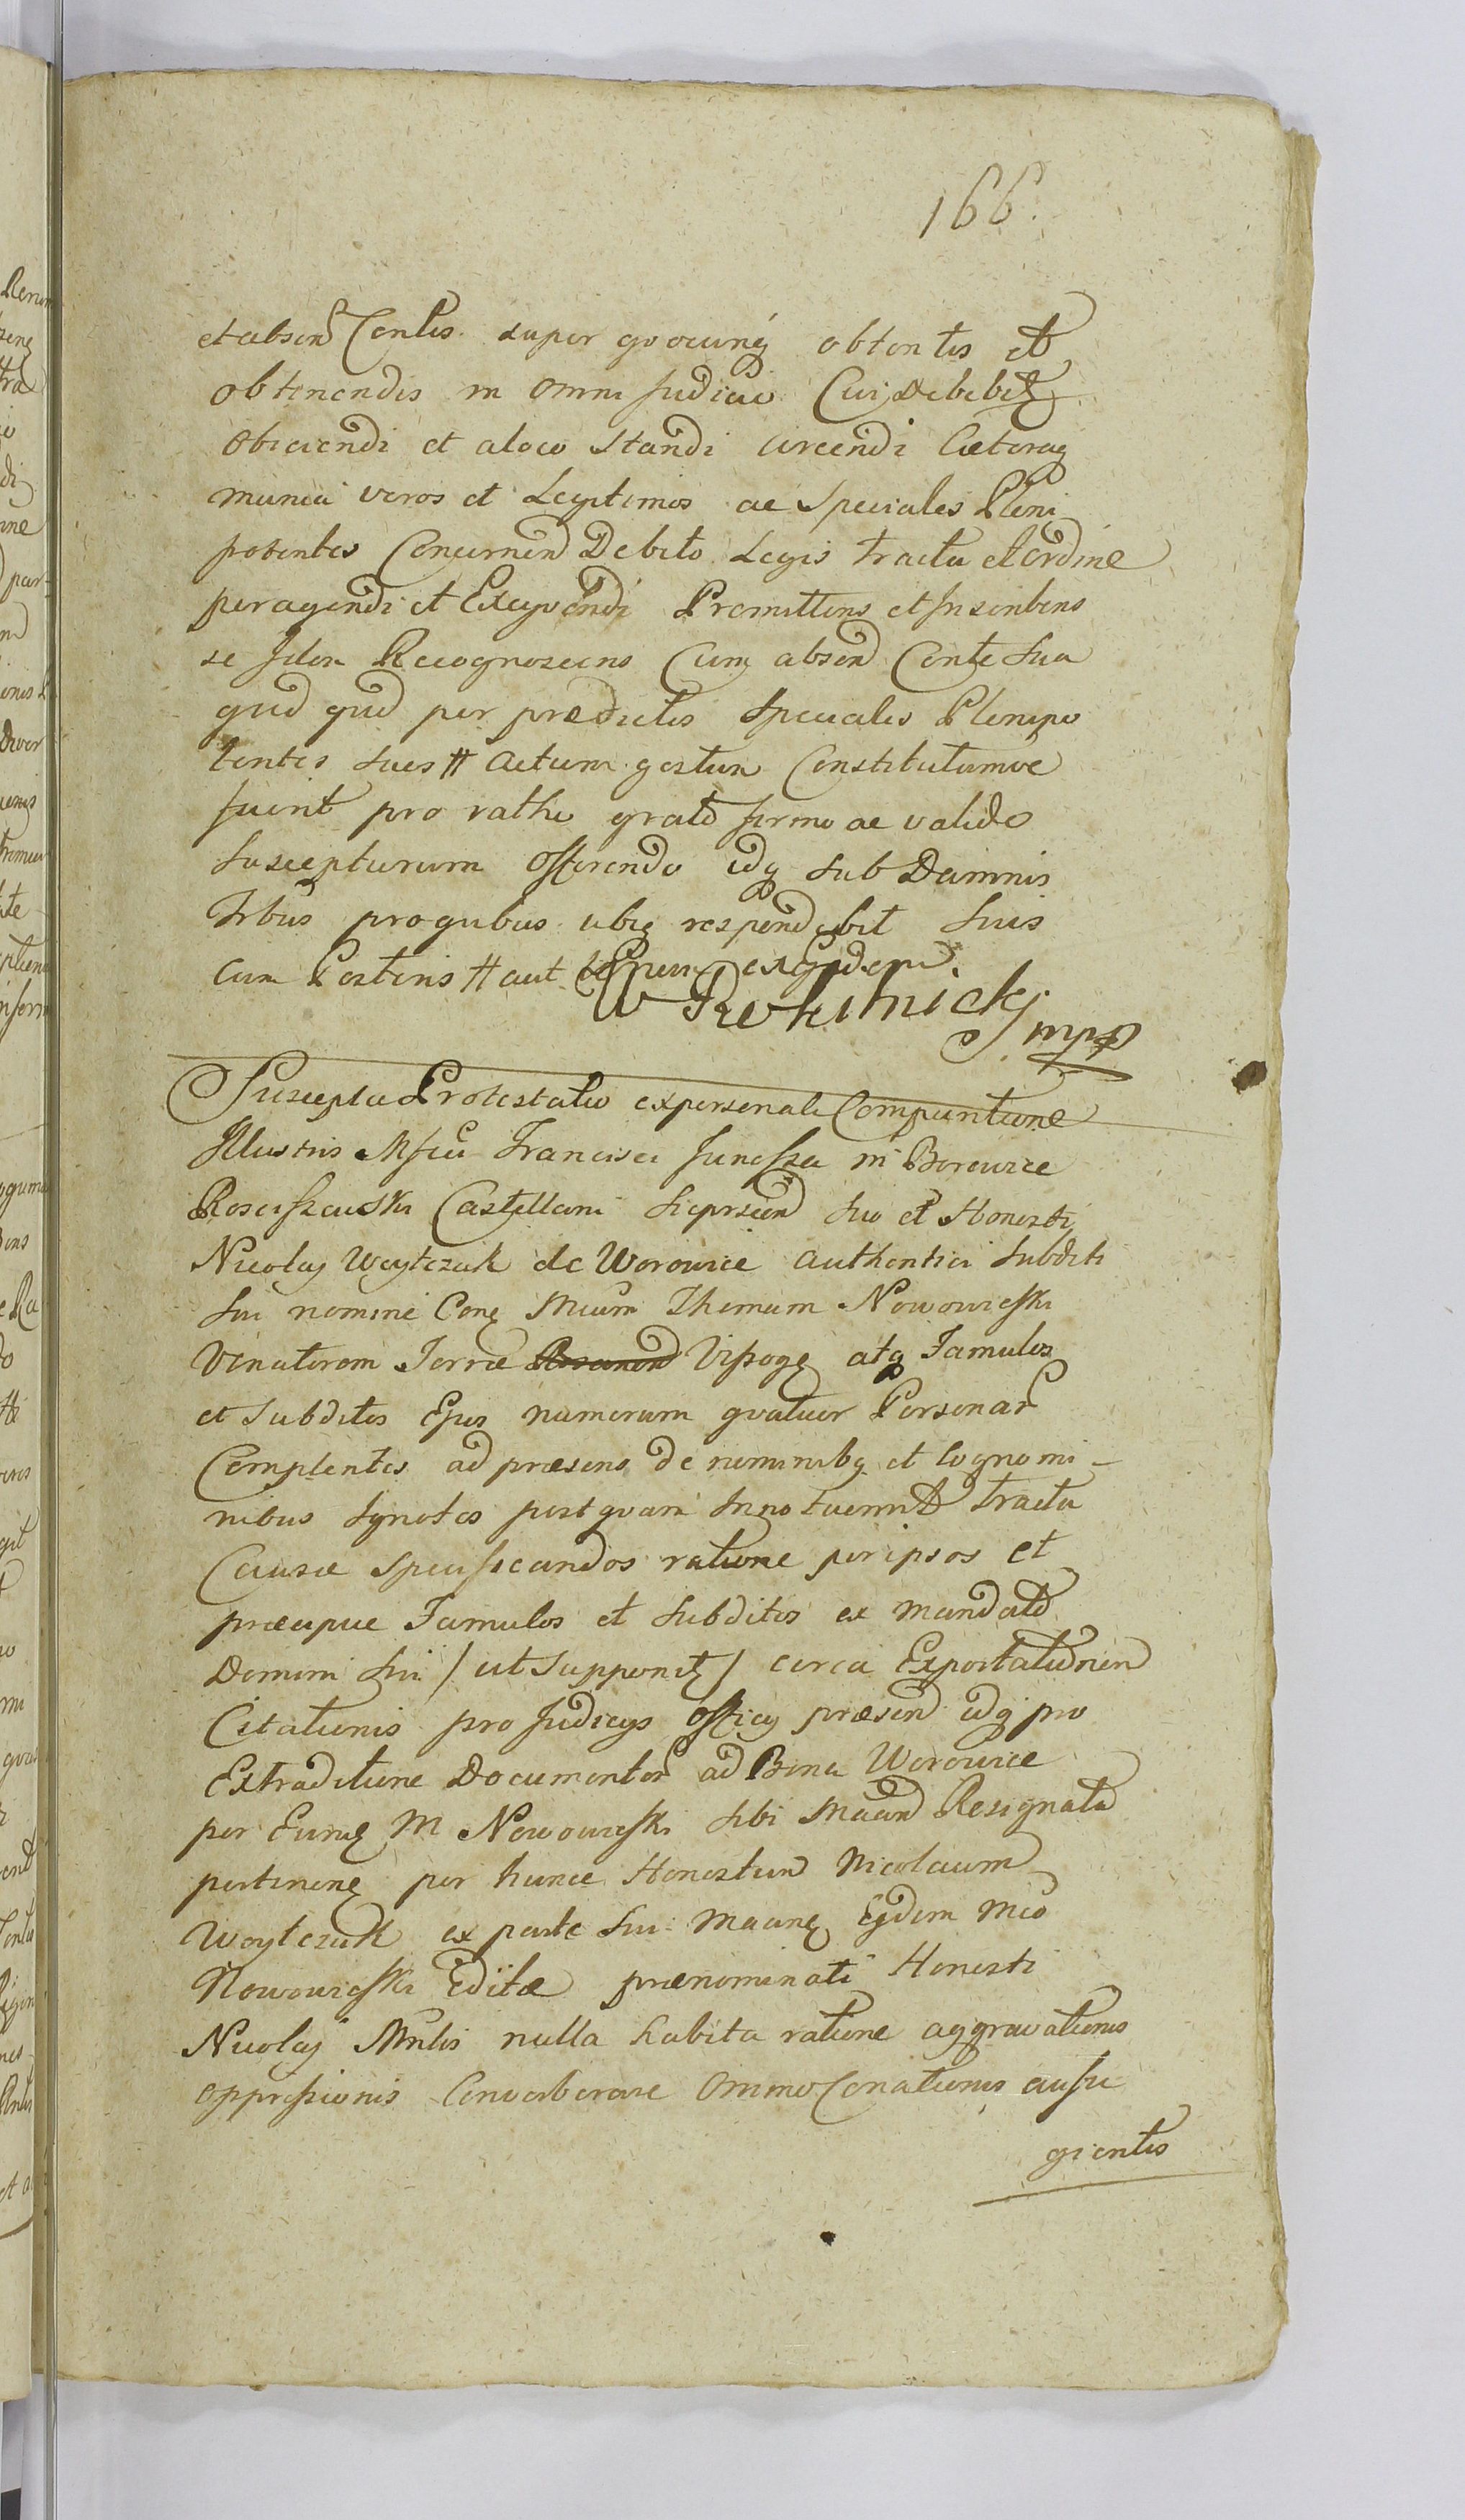 166.
et absen Contes super qvocunq obtentis et
obtinendis in omni Judicio Cui Debebitz
obiiciendi et a loco Standi arcendi Caeteraq
munia veros et Legitimos ac Speciales Pleni-
potentes Concernen Debito Legis tractu et ordine
peragendi et Exeqvendi Promittens et Inscribens
se Idem Recognoscens Cum absen Conte Sua
qvid qvid per praedictos Speciales Plenipo
tentes Suos # Actum gestum Constitutumve
fuerit pro ratho grato firmo ac valido
Suscepturum Offerendo idq sub Damnis
Trbus pro qvibus ubiq respondebit Suis
cum Posteris # aut exqvidem.
W mpp
Suscepta Protestatio ex personali Comparitione
Illustris Mfici Francisci Junosza in Borowice
Rosciszewski Castellani Sieprcen Suo et Honesti
Nicolaj Woytczak de Worowice authentici Subditi
Sui nomine Conq Mcum Thomam Nowowieski
Venatorem Terrae Vissogq atq Famulos
et Subditos Ejus numerum qvatuor Personar
Complentes ad praesens de nominibq et Cognomi-
nibus Ignotos postqvam Innotuerint tractu
Causae Specificandos ratione per ipsos et
praecipue Famulos et Subditos ex mandato
Domini Sui / ut Supponitz / circa Exportationem
Citationis pro Judicijs Officij praesen idq pro
Extraditione Documentor ad Bona Worowice
per Eundq M Nowowieski Sibi Resignata
pertinenq per hunce Honestum Nicolaum
Woytczak ex parte Sui Ejdem Mco
Nowowieski Editae praenominati Honesti
Nicolaj Mntis nulla habita ratione aggravationis
oppressionis Converberare Ommo Conationis aufu
gientis